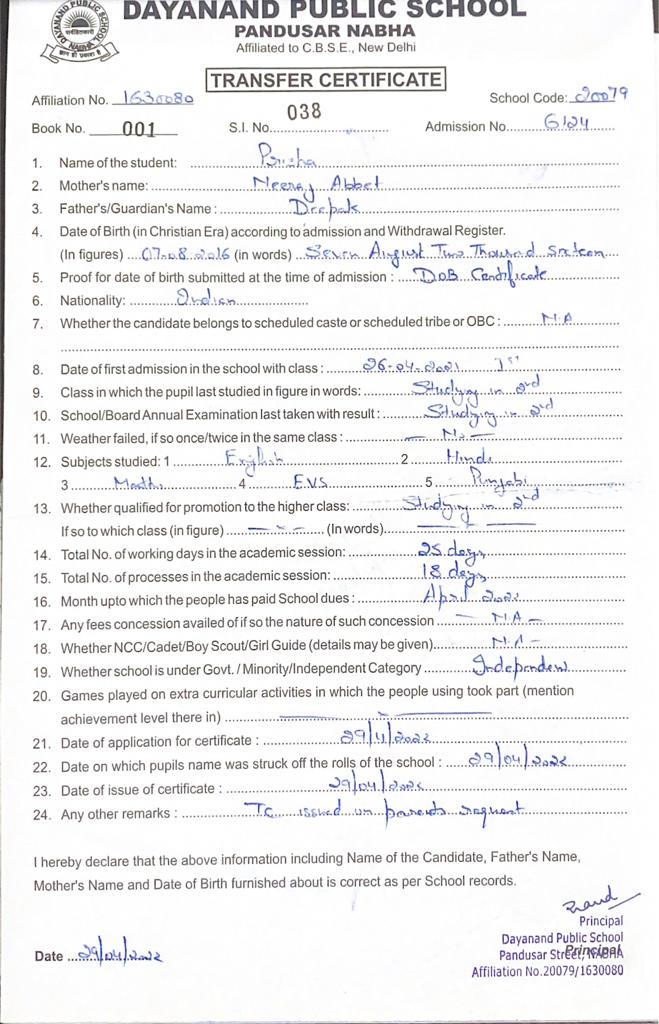 DAYANAND PUBLIC SCHOOL
PANDUSAR NABHA
Affiliated to C.B.S.E., New Delhi
TRANSFER CERTIFICATE
Affiliation No. 1630080 School Code: 20079
Book No. 001 S.I. No. 038 Admission No. 6124
1. Name of the student: Prisha
2. Mother's name: Neeraj Abbet
3. Father's/Guardian's Name : Deepak
4. Date of Birth (in Christian Era) according to admission and Withdrawal Register.
(In figures) 07-08-2016 (in words) Seven August Two Thousand Sixteen
5. Proof for date of birth submitted at the time of admission : DoB Certificate
6. Nationality: Indian
7. Whether the candidate belongs to scheduled caste or scheduled tribe or OBC : N.A
8. Date of first admission in the school with class : 26-04-2021 1st
9. Class in which the pupil last studied in figure in words: Studying in 2nd
10. School/Board Annual Examination last taken with result : Studying in 2nd
11. Weather failed, if so once/twice in the same class : — No —
12. Subjects studied: 1 English 2 Hindi
3 Maths 4 EVS 5 Punjabi
13. Whether qualified for promotion to the higher class: Studying in 2nd
If so to which class (in figure) (In words)
14. Total No. of working days in the academic session: 25 days
15. Total No. of processes in the academic session: 18 days
16. Month upto which the people has paid School dues : April 2022
17. Any fees concession availed of if so the nature of such concession — N.A —
18. Whether NCC/Cadet/Boy Scout/Girl Guide (details may be given) N.A -
19. Whether school is under Govt. / Minority/Independent Category Independent
20. Games played on extra curricular activities in which the people using took part (mention
achievement level there in)
21. Date of application for certificate : 29/4/2022
22. Date on which pupils name was struck off the rolls of the school : 29/04/2022
23. Date of issue of certificate : 29/04/2022
24. Any other remarks : TC issued on parents request
I hereby declare that the above information including Name of the Candidate, Father's Name,
Mother's Name and Date of Birth furnished about is correct as per School records.
Principal
Dayanand Public School
Date 29/04/2022 Pandusar Street, NABHA Principal
Affiliation No.20079/1630080